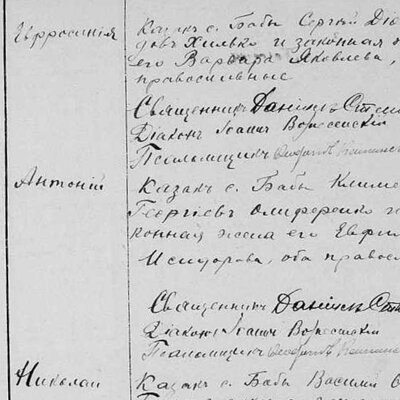 Евфросинія
Казакъ с. Бабы Сергій
довъ Хилько и законная
его Варвара Яковлева,
православные
Священникъ Даніилъ
Діаконъ Іоаннъ Вознесенскій
Псаломщикъ
Антоній
Казакъ с. Бабы Климе
Георгіевъ Олиференко и
конная жена его Евфи
Исидорова, оба правос
Священникъ Даніилъ
Діаконъ Іоаннъ Вознесенскій
Псаломщикъ
Николай
Казакъ с. Бабы Василій